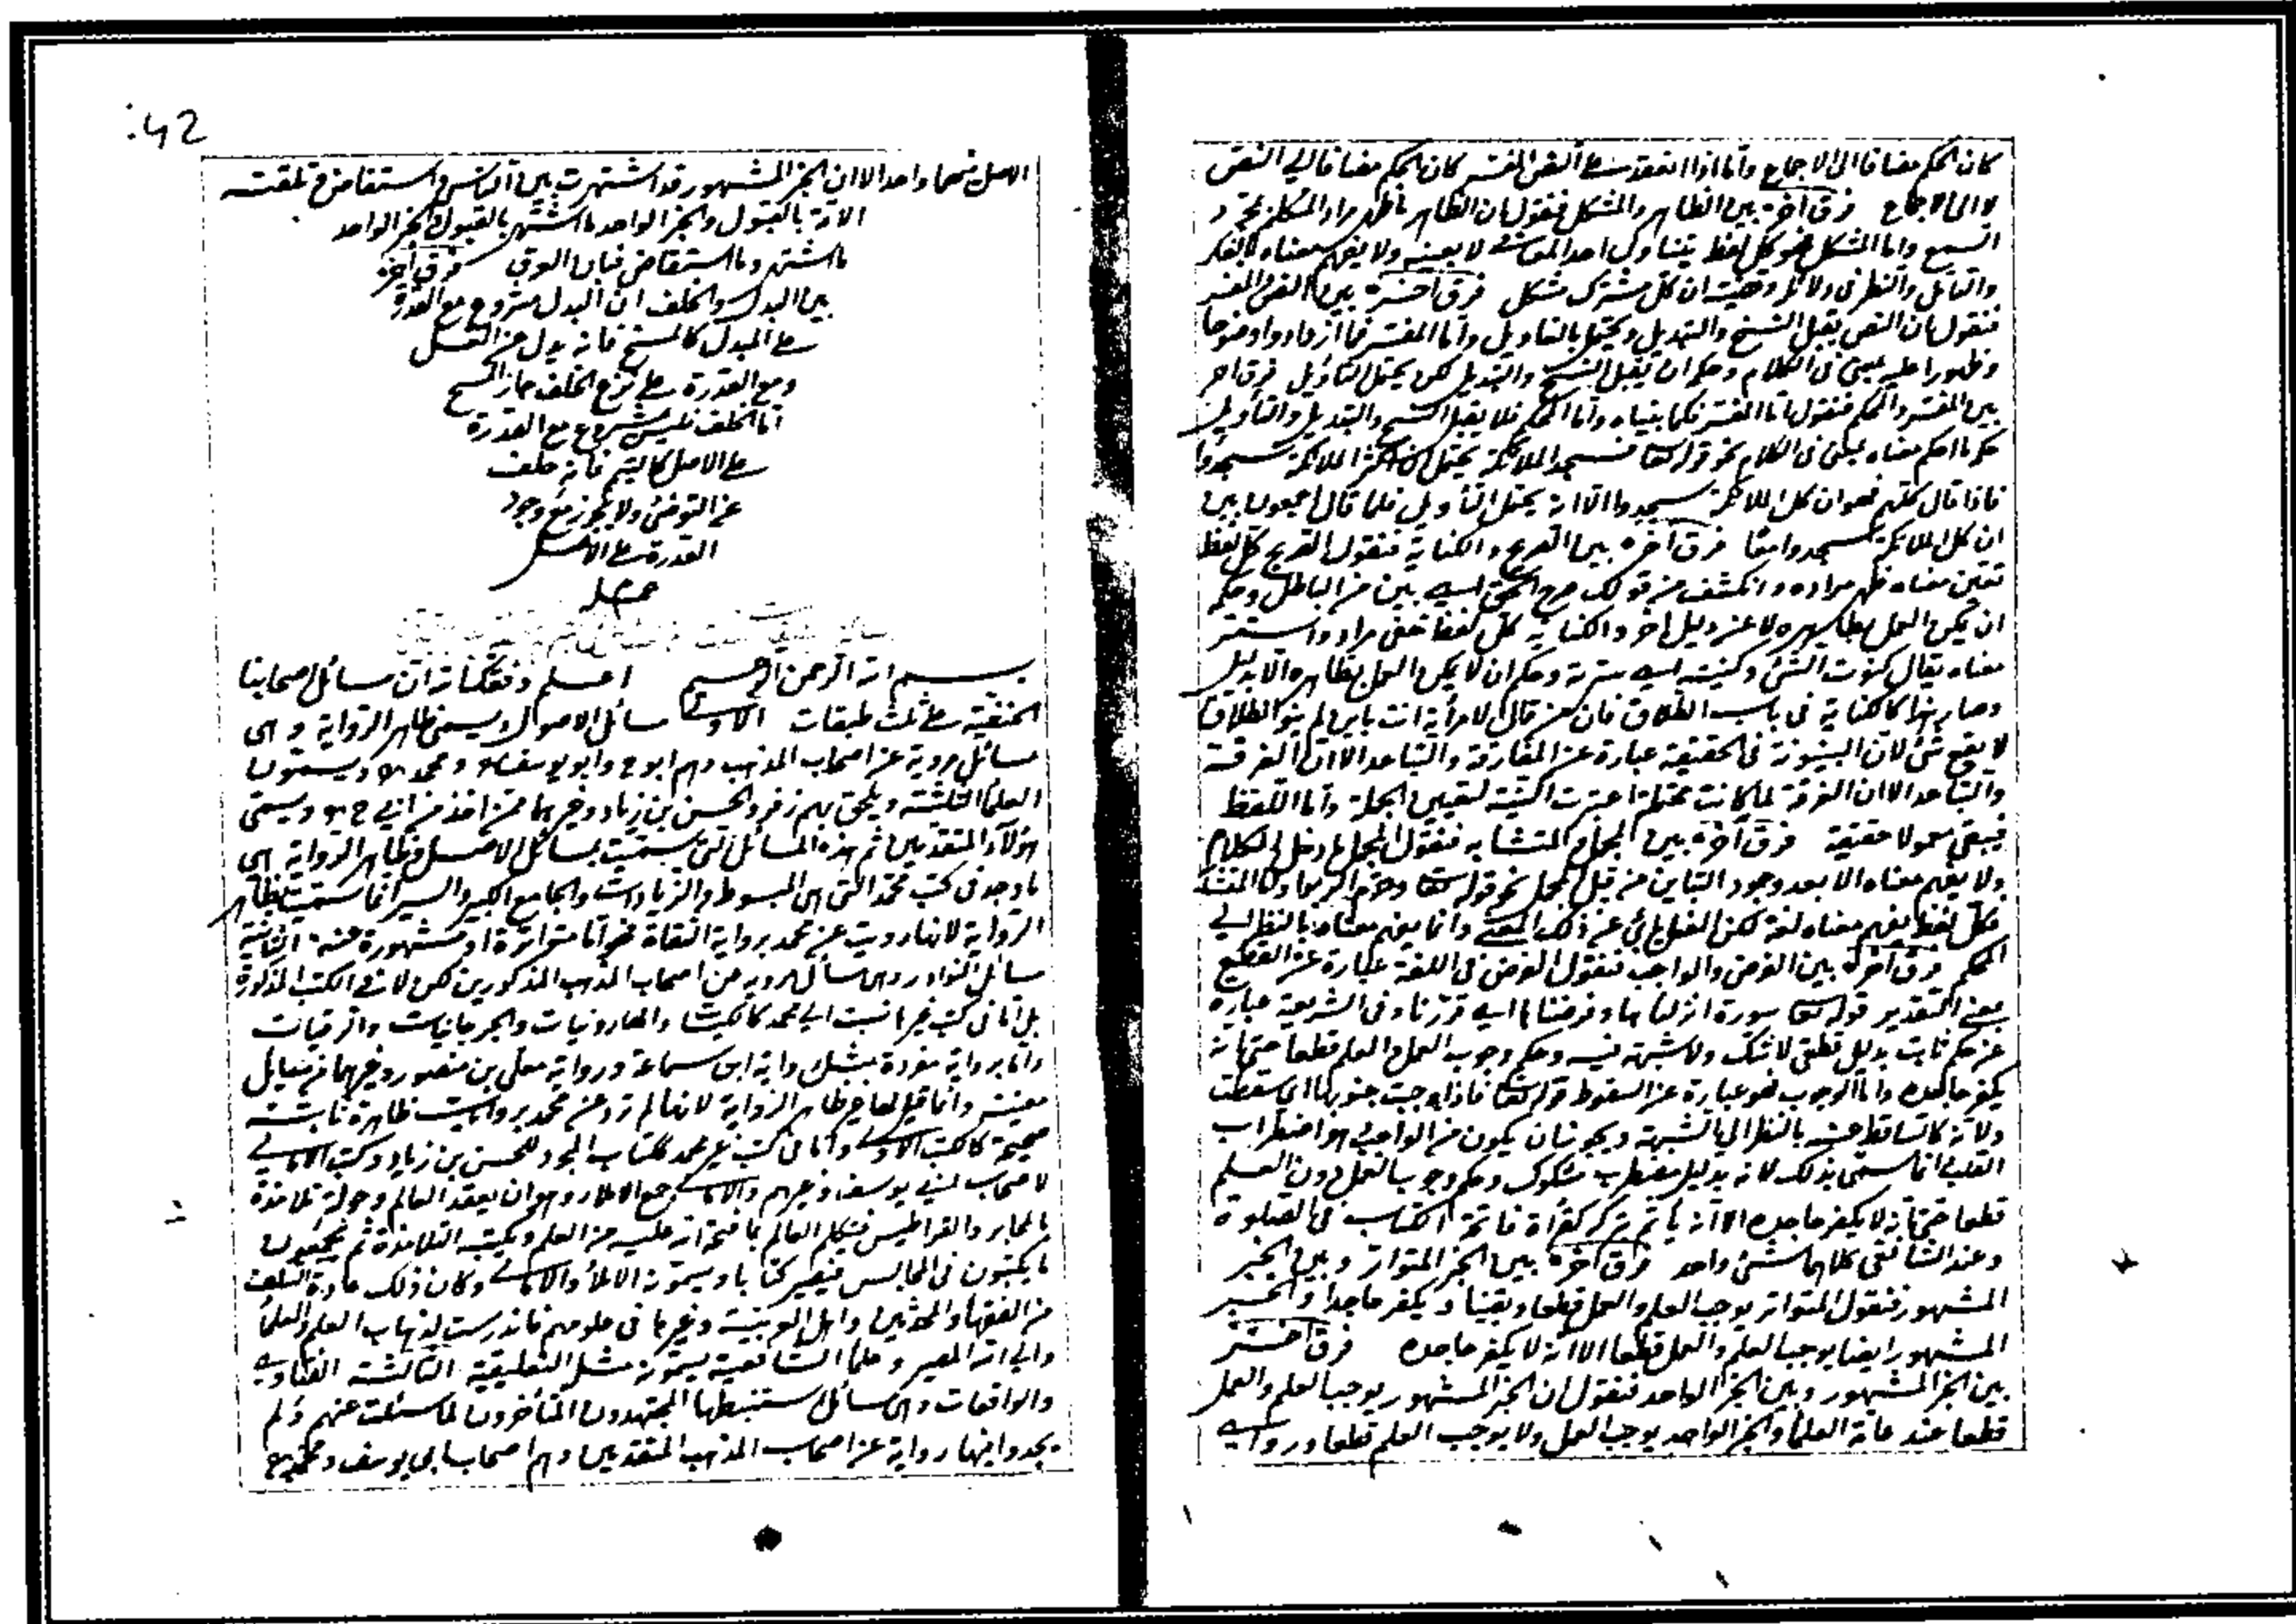 كان الحكم مضافا الى الاجماع واما اذا انعقد على النص المفسر كان الحكم مضافا الى النص
لا الى الاجماع فرق آخر بين الظاهر والمشكل فنقول بان الظاهر ما ظهر مراد المتكلم بمجرد
السمع واما المشكل فهو كل لفظ يتناول احد المعاني لا بعينه ولا يفهم معناه الا بالفكر
والتامل والنظر في دلائله وقضيته ان كل مشترك مشكل فرق آخر بين النص والمفسر
فنقول بان النص يقبل النسخ والتبديل ويحتمل بالتاويل واما المفسر فما ازداد وضوحا
وظهورا عليه بمعنى في الكلام وحكم ان يقبل النسخ والتبديل لكن يحتمل التاويل فرق آخر
بين المفسر والمحكم فنقول اما المفسر فكما بيناه واما المحكم فلا يقبل النسخ والتبديل والتأويل
احكم معناه بمعنى في الكلام نحو قوله تعالى فسجد الملائكة يحتمل ان اكثر الملائكة سجدوا
فاذا قال كلهم فهو ان كل الملائكة سجدوا الا انه يحتمل التأويل فلما قال اجمعون بين
ان كل الملائكة سجدوا معا فرق آخر بين الصريح والكناية فنقول الصريح كل لفظ
تعين معناه ظهر مراده وانكشف من قولك صرح الحق اي بين من الباطل وحكم
ان يمكن العمل بظاهره لا عن دليل آخر والكناية كل لفظ خفي مراده واستتر
معناه يقال كنوت الشئ وكنيته اي سترته وحكم ان لا يمكن العمل بظاهره الا بدليل
وصار هذا كالكناية في باب الطلاق فان من قال لامرأته انت باين لم ينو الطلاق
لا يقع شئ لان البينونة في الحقيقة عبارة عن المفارقة والتباعد الا ان الفرقة
والتباعد الا ان الفرقة لما كانت محتملة اعتبرت النية لتعيين الجملة واما اللفظ
فيبقى معمولا حقيقة فرق آخر بين المجمل والمتشابه فنقول المجمل ما دخل في الكلام
ولا يفهم معناه الا بعد وجود التباين من قبل المجمل نحو قوله تعالى وحرم الربوا واما المتشابه
فكل لفظ يفهم معناه لغة لكن العقل يأبى عن ذلك المعنى وانما يفهم معناه بالنظر الى
المحكم فرق آخر بين الفرض والواجب فنقول الفرض في اللغة عبارة عن القطع
بمعنى التقدير قوله تعالى سورة انزلناها وفرضناها اي قدرنا وفي الشريعة عبارة
عن حكم ثابت بدليل قطعي لا شك ولا شبهة فيه وحكم وجوب العمل والعلم قطعا حتى انه
يكفر جاحده واما الوجوب فهو عبارة عن السقوط قوله تعالى فاذا وجبت جنوبها اي سقطت
ولانه كالساقط عنه بالنظر الى الشبهة ويجوز ان يكون من الواجب هو اضطراب
القلب انما سمي بذلك لانه بدليل مضطرب مشكوك وحكم وجوب العمل دون العلم
قطعا حتى انه لا يكفر جاحده الا انه يأثم بتركه كقرأة فاتحة الكتاب في الصلوة
وعند الشافعي كلاهما شئ واحد فرق آخر بين الخبر المتواتر وبين الخبر
المشهور فنقول المتواتر يوجب العلم والعمل قطعا ويقينا ويكفر جاحدا والخبر
المشهور ايضا يوجب العلم والعمل قطعا الا انه لا يكفر جاحده فرق آخر
بين الخبر المشهور وبين الخبر الواحد فنقول ان الخبر المشهور يوجب العلم والعمل
قطعا عند عامة العلماء والخبر الواحد يوجب العمل ولا يوجب العلم قطعا
42
الاصل فيهما واحد الا ان الخبر المشهور قد اشتهرت بين الناس واستفاض وتلقته
الامة بالقبول والخبر الواحد ما اشتهر بالقبول والخبر الواحد
ما اشتهر وما استفاض فبان الفرق فرق آخر
بين البدل والخلف ان البدل مشروع مع القدرة
على المبدل كالمسح فانه بدل عن الغسل
ومع القدرة على نزع الخلف جاز المسح
اما الخلف فليس مشروع مع القدرة
على الاصل كالتيمم فانه خلف
عن التوضئ ولا يجوز مع وجود
القدرة على الاصل
بسم الله الرحمن الرحيم اعلم وفقك الله ان مسائل اصحابنا
الحنفية على ثلث طبقات الاولى مسائل الاصول ويسمى ظاهر الرواية وهي
مسائل مروية عن اصحاب المذهب وهم ابو ح وابو يوسف ومحمد ويسمون
العلماء الثلثة ويلحق بهم زفر والحسن بن زياد وغيرهما ممن اخذ من ابي ح ويسمى
هؤلاء المتقدمين ثم هذه المسائل التي سميت بمسائل الاصل وظاهر الرواية هي
ما وجد في كتب محمد التي هي المبسوط والزيادات والجامع الكبير والسير انما سميت بظاهر
الرواية لانها رويت عن محمد برواية الثقاة فهي اما متواترة او مشهورة عنه الثانية
مسائل النوادر وهي مسائل مروية من اصحاب المذهب المذكورين لكن لا في الكتب المذكورة
بل اما في كتب غيرها نسبت الى محمد كالكيسانيات والهارونيات والجرجانيات والرقيات
واما برواية مفردة مثل رواية ابن سماعة ورواية معلى بن منصور وغيرهما في مسائل
معينة وانما قيل لها غير ظاهر الرواية لانها لم ترو عن محمد بروايات ظاهرة ثابتة
صحيحة كالكتب الاولى واما في كتب غير محمد ككتاب المجرد للحسن بن زياد وكتب الامالي
لاصحاب ابي يوسف وغيرهم والامالي جمع الاملاء وهو ان يعقد العالم وحوله تلامذة
بالمحابر والقراطيس فيتكلم العالم بما فتحه الله عليه من العلم ويكتب التلامذة ثم يجمعون
ما يكتبون في المجالس فيصير كتابا ويسمونه الاملأ والامالي وكان ذلك عادة السلف
من الفقهاء والمحدثين واهل العربية وغيرها في علومهم فاندرست لذهاب العلم والعلماء
والى الله المصير وعلماء الشافعية يسمون مثل التعليقة الثالثة الفتاوى
والواقعات وهي مسائل استنبطها المجتهدون المتأخرون لما سئلت عنهم ولم
يجدوا فيها رواية عن اصحاب المذهب المتقدمين وهم اصحاب ابي يوسف ومحمد